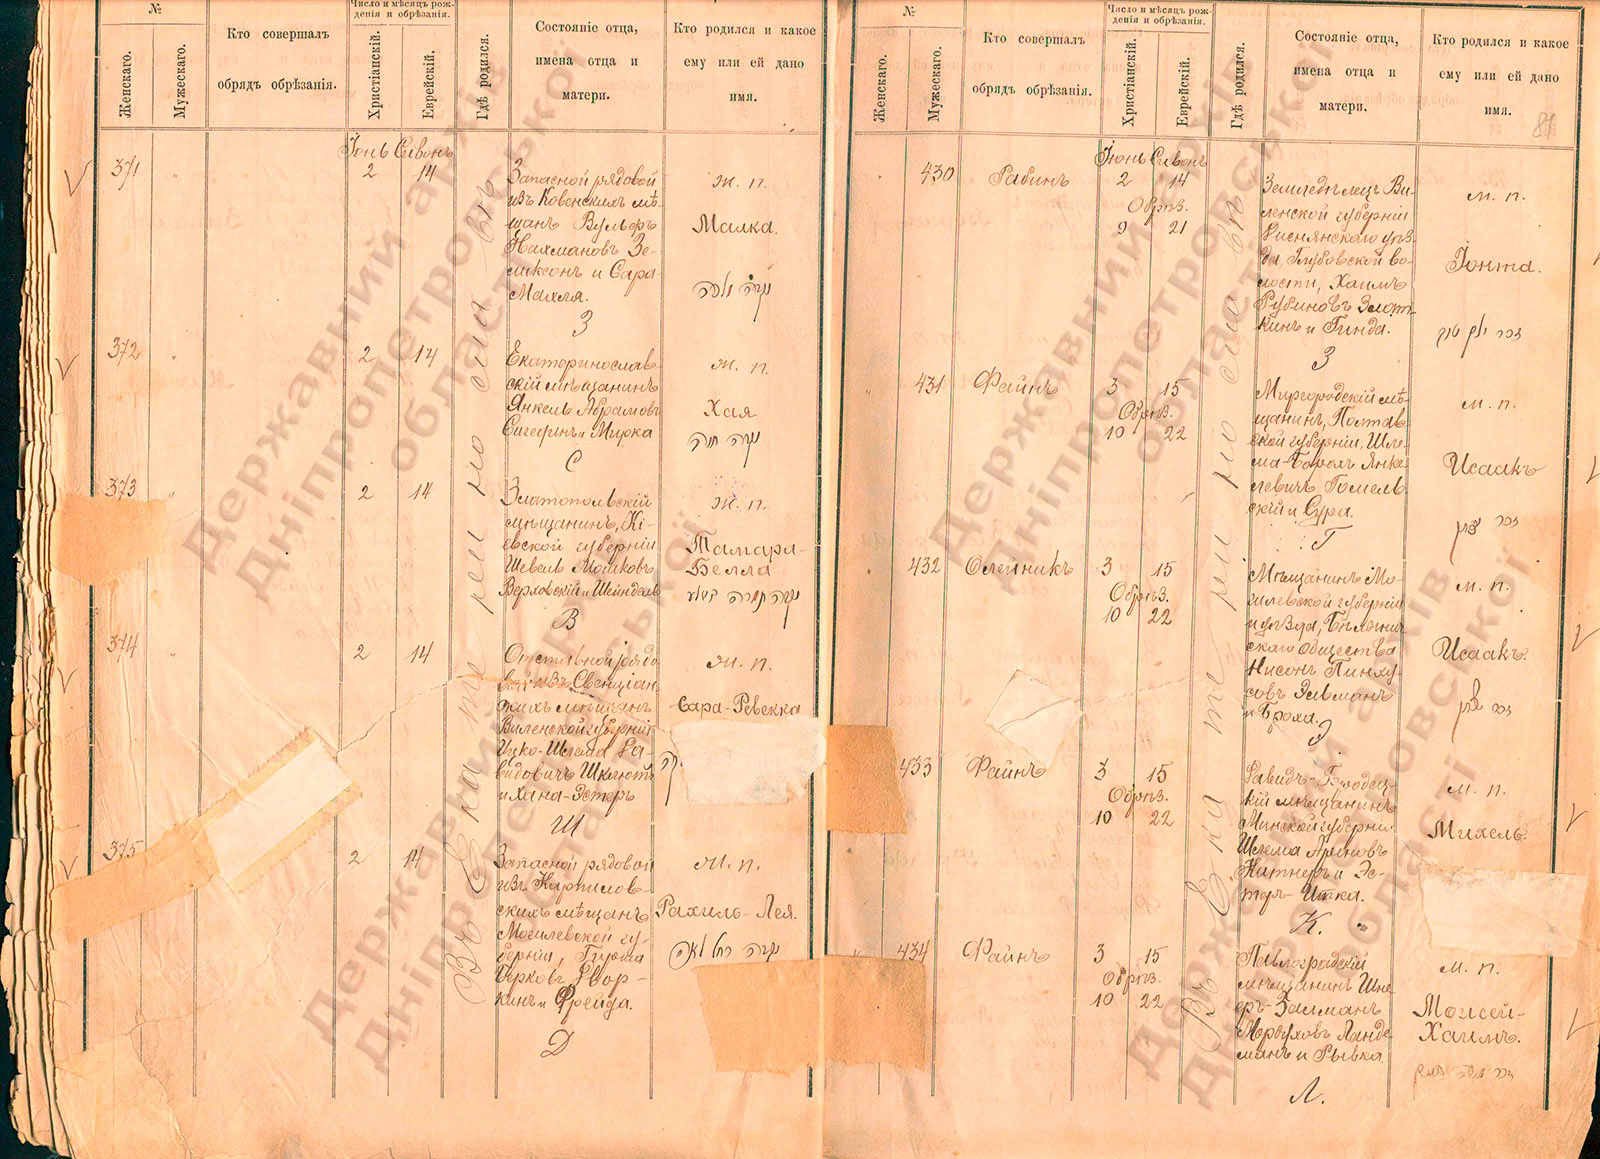 №
Женскаго.
Мужескаго.
Кто совершалъ
обрядъ обрѣзанія.
Число и мѣсяцъ рож-
денія и обрѣзанія.
Христіанскій.
Еврейскій.
Гдѣ родился.
Состояніе отца,
имена отца и
матери.
Кто родился и какое
ему или ей дано
имя.
Іюнь Сивонъ
371 2 14
Запасной рядовой
изъ Ковенскихъ мѣ-
щанъ Вульфъ
Нахмановъ Зе-
ликсонъ и Сара-
Махля.
З
ж. п.
Малка.
372 2 14
Екатеринослав
скій мѣщанинъ
Янкель Абрамовъ
Сигединъ и Мирка
С
ж. п.
Хая
373 2 14
Златопольскій
мѣщанинъ, Кі-
евской губерніи
Шевель Мошковъ
Верховскій и Шейндель
В
ж. п.
Тамара-
Белла
374 2 14
Отставной рядо
вой изъ Свенціан-
скихъ мѣщанъ
Виленской губерніи
Ицко-Шлема Да-
видовичъ Шклютъ
и Хана-Эстеръ
Ш
ж. п.
Сара-Ревекка
375 2 14
Запасной рядовой
изъ
скихъ мѣщанъ
Могилевской гу-
берніи,
Берковъ Двор-
кинъ и Фрейда.
Д
ж. п.
Рахиль-Лея.
Въ Екатеринославѣ
№
Женскаго.
Мужескаго.
Кто совершалъ
обрядъ обрѣзанія.
Число и мѣсяцъ рож-
денія и обрѣзанія.
Христіанскій.
Еврейскій.
Гдѣ родился.
Состояніе отца,
имена отца и
матери.
Кто родился и какое
ему или ей дано
имя.
81
Іюнь Сивонъ
430 Рабинъ 2 14
Обрѣз.
9 21
Земледѣлецъ Ви-
ленской губерніи
Диснянскаго уѣз-
да, Глубокской во-
лости, Хаимъ
Рубиновъ Злот-
кинъ и Гинда.
З
м. п.
Іонта.
431 Файнъ 3 15
Обрѣз.
10 22
Миргородскій мѣ-
щанинъ, Полтав
ской губерніи, Шле-
ма-Борохъ Янке-
левичъ Гомель
скій и Сура.
Г
м. п.
Исаакъ
432 Олейникъ 3 15
Обрѣз.
10 22
Мѣщанинъ Мо-
гилевской губерніи
и уѣзда,
скаго общества
Нисонъ Пинху-
совъ Эльманъ
и Броха.
Э
м. п.
Исаакъ.
433 Файнъ 3 15
Обрѣз.
10 22
Давидъ-Городец-
кій мѣщанинъ
Минской губерніи
Шлема Ароновъ
Китнеръ и Эс-
теръ-Итка.
К.
м. п.
Михель.
434 Файнъ 3 15
Обрѣз.
10 22
Павлоградскій
мѣщанинъ Шне-
еръ-Залманъ
Мордуховъ Ланде-
манъ и Рывка.
Л.
м. п.
Моисей-
Хаимъ.
Въ Екатеринославѣ
Державний архів
Дніпропетровської
області